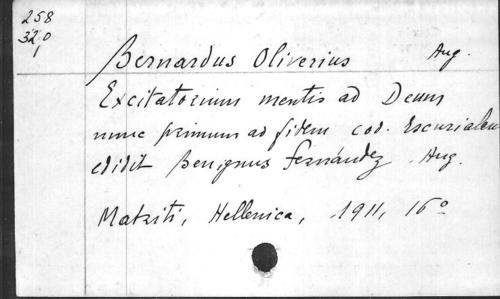 258
320
1
Bernardus Oliverius Aug.
Excitatorium mentis ad Deum
nunc primum ad fidem cod. Escurialen
edidit Benignus Fernández Aug.
Matriti, Hellenica, 1911, 16°